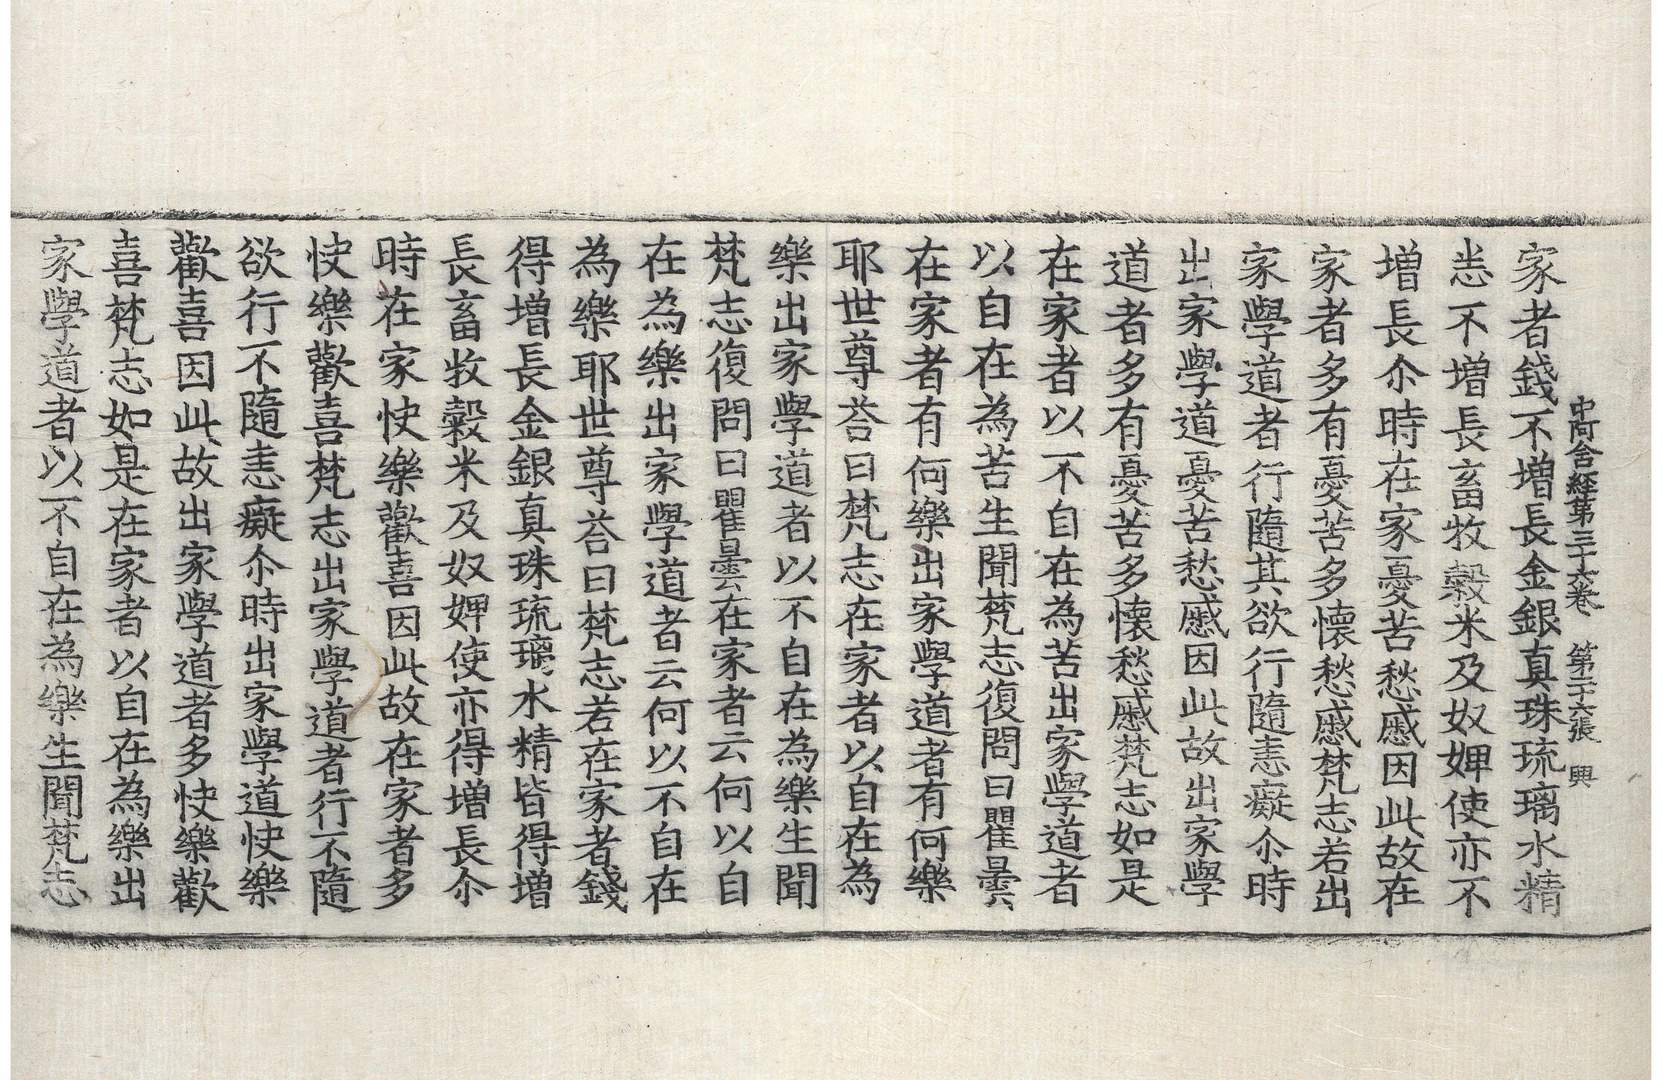 中阿含經第三十六卷 第二十六張 興
家者錢不增長金銀真珠琉璃水精
悉不增長畜牧穀米及奴婢使亦不
增長尒時在家憂苦愁慼因此故在
家者多有憂苦多懷愁慼梵志若出
家學道者行隨其欲行隨恚癡尒時
出家學道憂苦愁慼因此故出家學
道者多有憂苦多懷愁慼梵志如是
在家者以不自在為苦出家學道者
以自在為苦生聞梵志復問曰瞿曇
在家者有何樂出家學道者有何樂
耶世尊荅曰梵志在家者以自在為
樂出家學道者以不自在為樂生聞
梵志復問曰瞿曇在家者云何以自
在為樂出家學道者云何以不自在
為樂耶世尊荅曰梵志若在家者錢
得增長金銀真珠琉璃水精皆得增
長畜牧穀米及奴婢使亦得增長尒
時在家快樂歡喜因此故在家者多
快樂歡喜梵志出家學道者行不隨
欲行不隨恚癡尒時出家學道快樂
歡喜因此故出家學道者多快樂歡
喜梵志如是在家者以自在為樂出
家學道者以不自在為樂生聞梵志